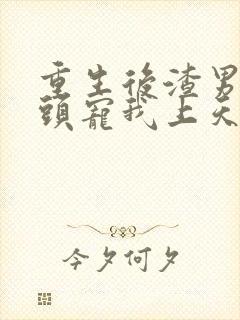 重生後渣男
頭寵我上天
今夕何夕